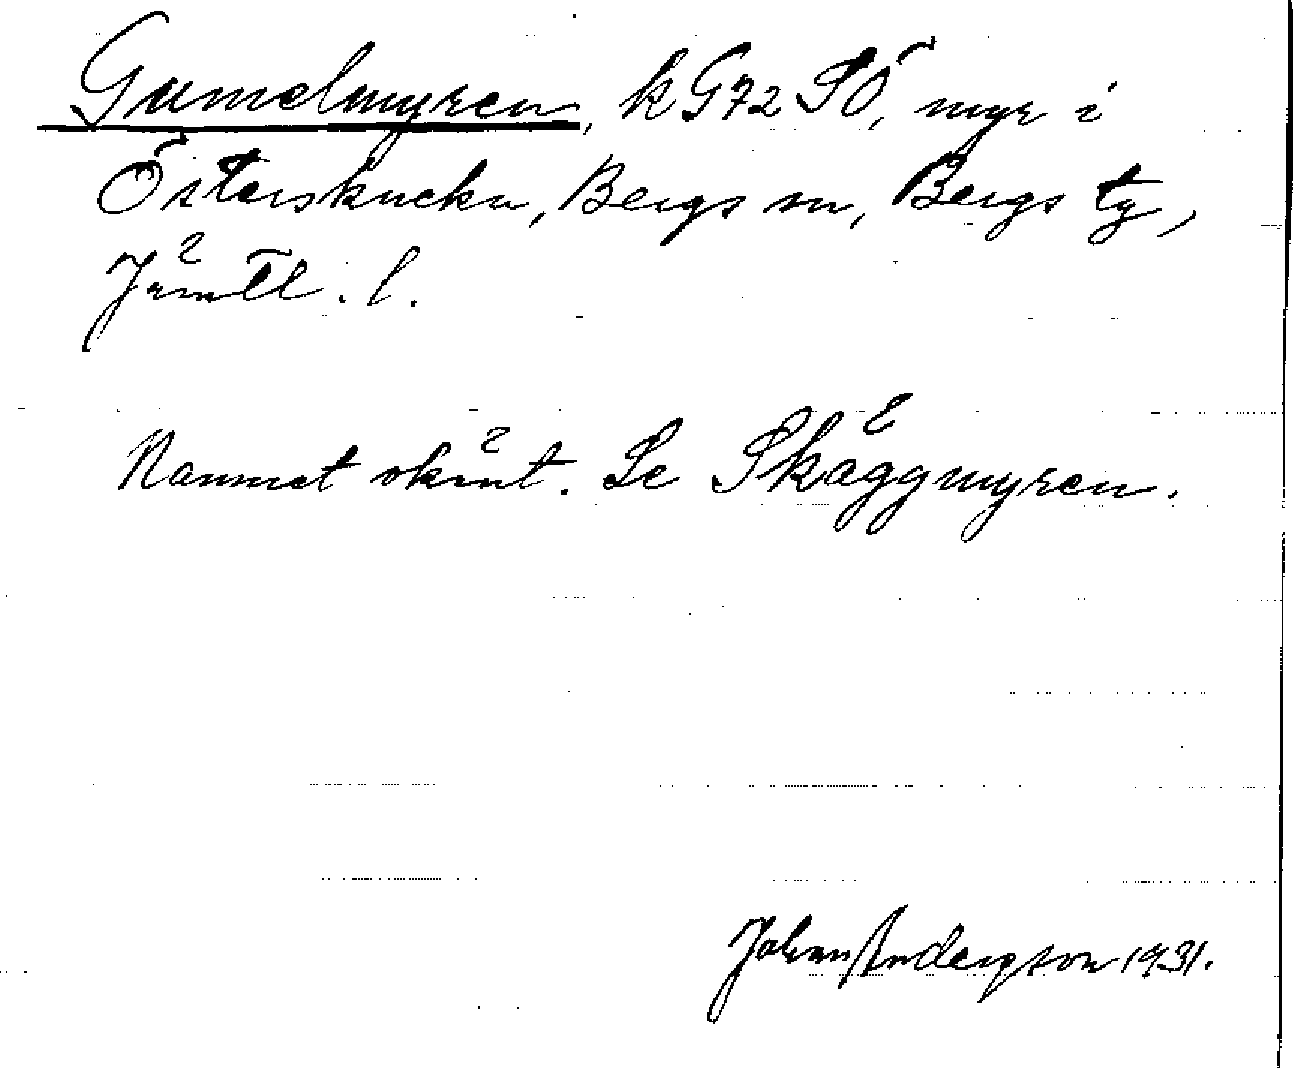 Gamelmyren, k G72 SÖ, myr i
Österskucku, Bergs sn, Bergs tg,
Jämtl. l.
Namnet okänt. Se Skäggmyren.
Johan Anderson 1931.